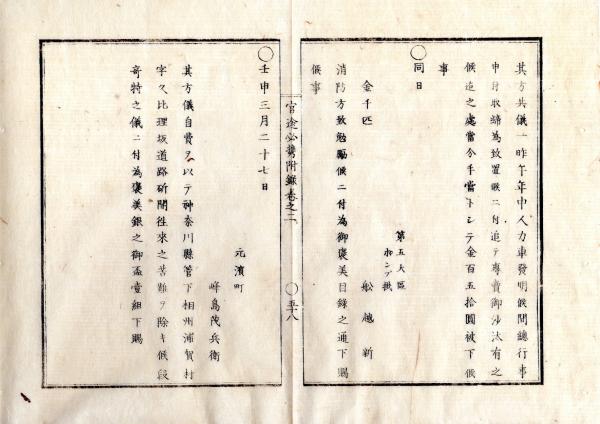 其方共儀一昨午年中人力車發明候間總行事
申付取締為致置候ニ付追テ專賣御沙汰有之
候迄之處當今手當トシテ金百五拾圓被下候
事
〇同日
第五大區
ポンプ掛
金千匹
舩越新
消防方致勉勵候ニ付為御褒美目錄之通下賜
候事
官途必携附錄卷之二
〇五十八
〇壬申三月二十七日
元濱町
峰島茂兵衛
其方儀自費ヲ以テ神奈川縣管下相州浦賀村
字久比理坂道路斫開徃來之苦難ヲ除キ候段
奇特之儀ニ付為褒美銀之御盃壹組下賜